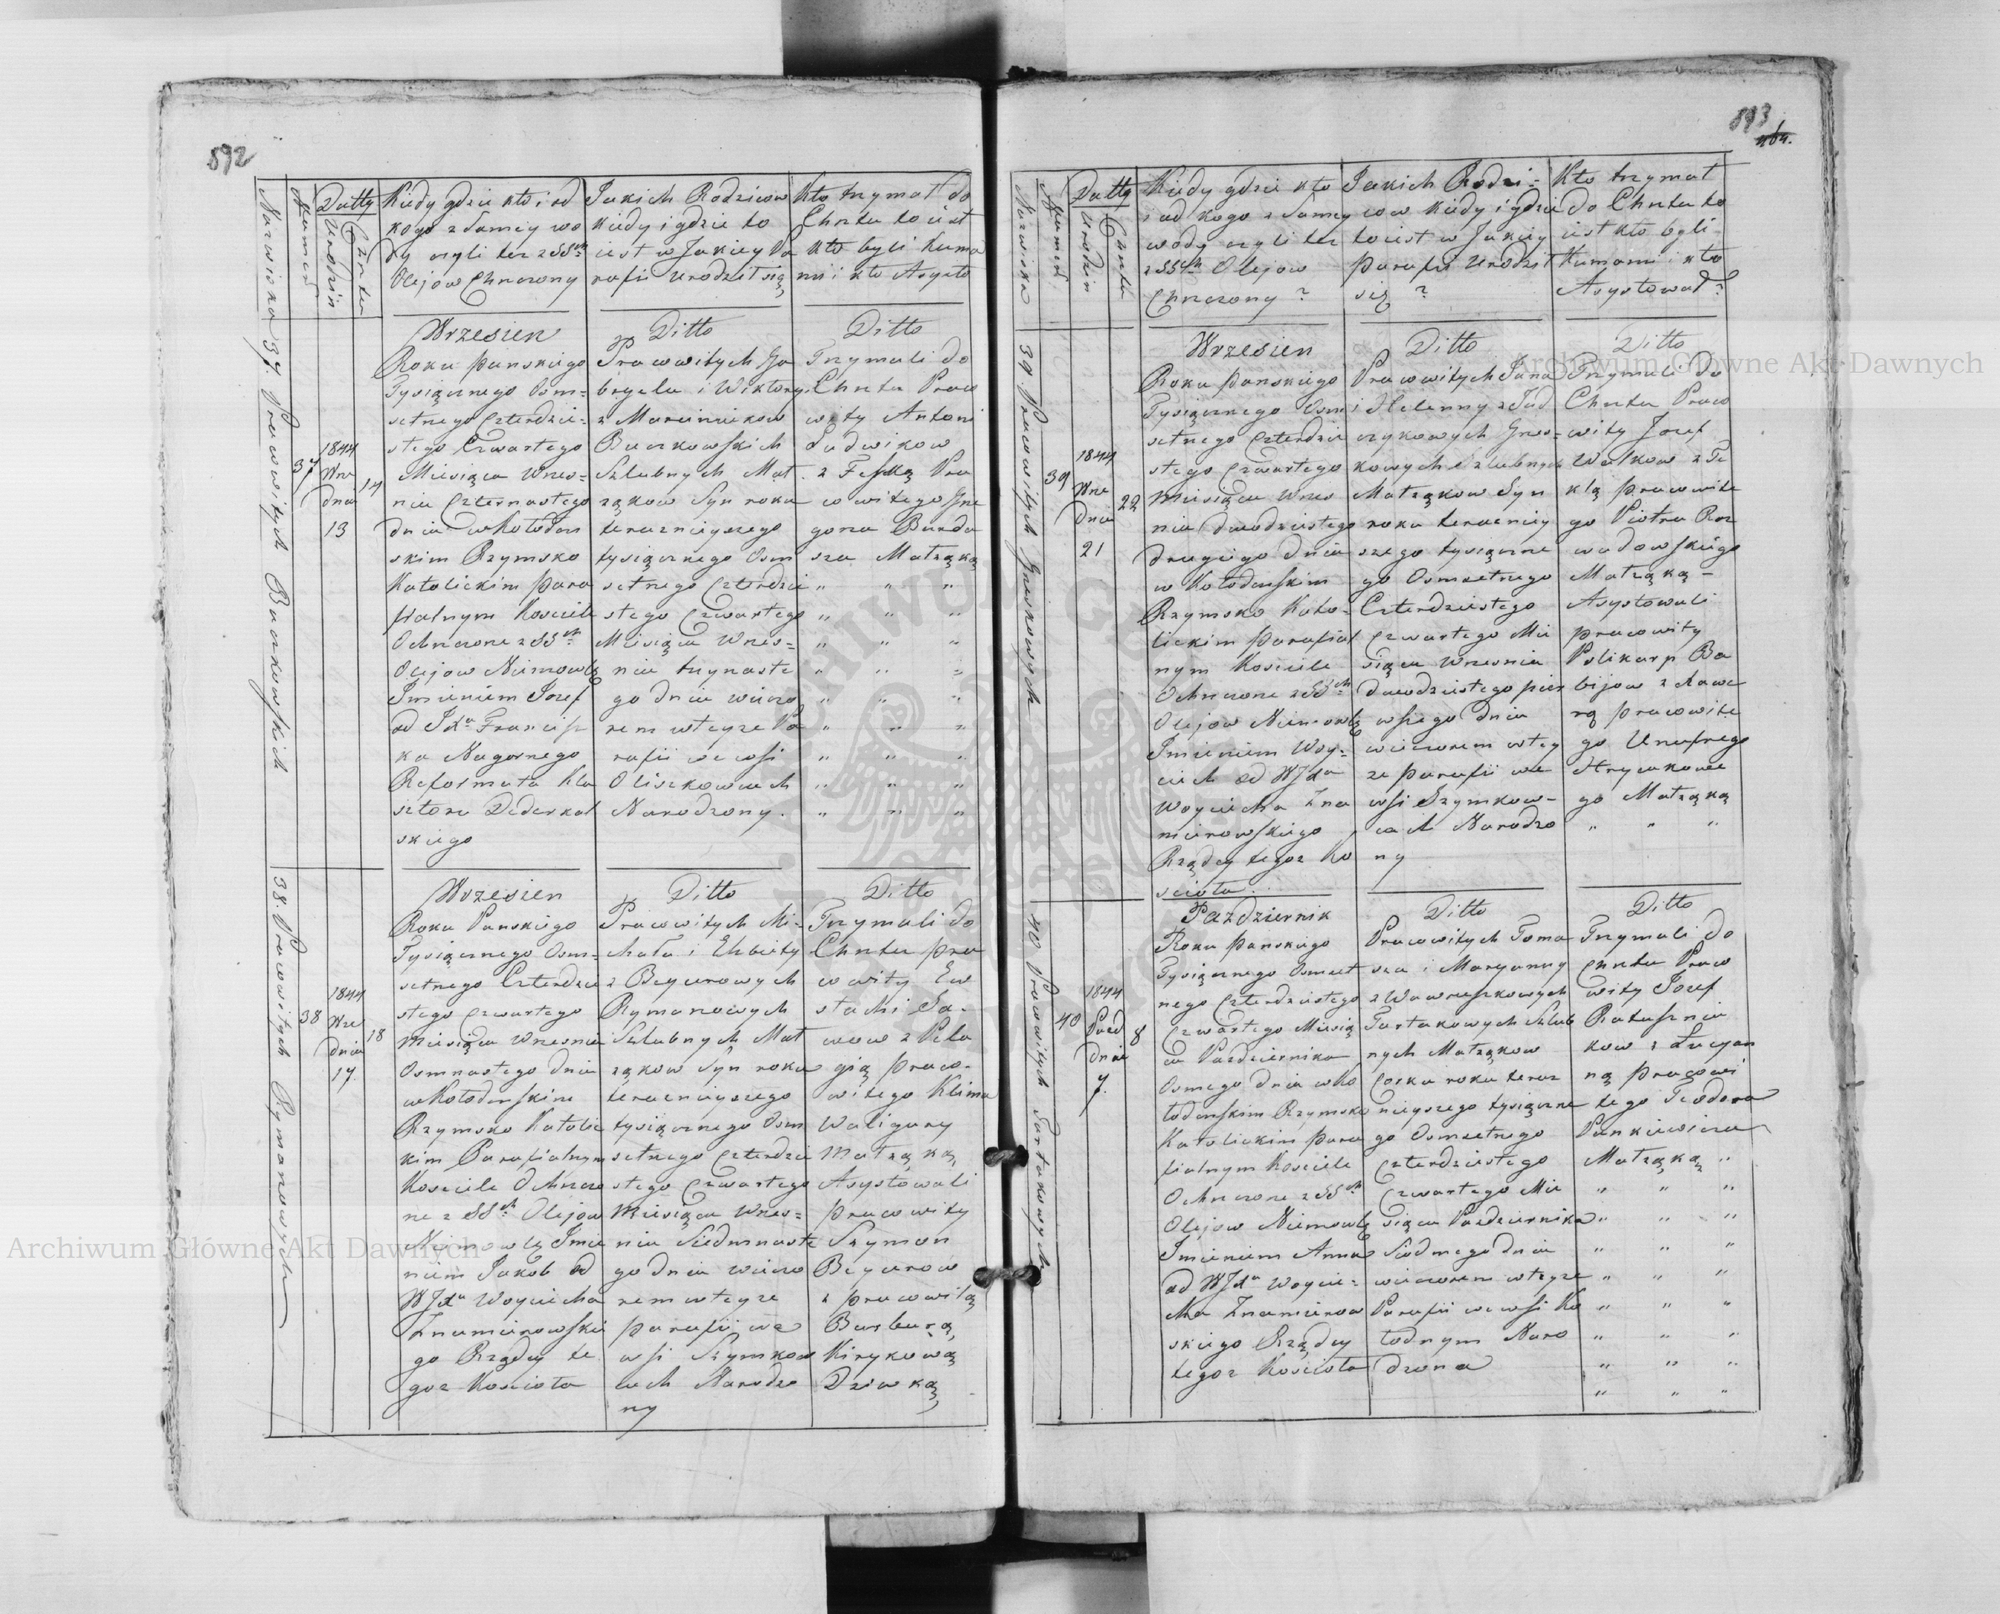 592
Nazwiska
Numer
Datty
Urodzin
Chrztu
Kiedy gdzie kto i od
kogo z samey wo
dy czyli tez z SSch
Olejow Chrzczony
Jakich Rodzicow
kiedy i gdzie to
iest w Jakiey Pa
rafii Urodził się
Kto trzymał do
Chrztu to iest
kto byli Kuma
mi i kto Asysto
37. Pracowitych Buczkowskich
37
1844
Wrze
dnia
13
14
Wrzesien
Roku Panskiego
Tysiącznego Osm=
setnego Czterdzie=
stego Czwartego
Miesiąca Wrzes=
nia Czternastego
dnia w Kołoden
skim Rzymsko
Katolickim Para
fialnym Kosciele
Ochrzczone z SSch
Olejow Niemowlę
Imieniem Jozef
od Xdza Francisz
ka Nagornego
Reformata Kla
sztoru Dederkal
skiego
Ditto
Pracowitych Ga
bryela i Wiktoryi
z Marcinikow
Buczkowskich
Szlubnych Mał
ząkow Syn roku
teraznieyszego
tysiącznego Osm
setnego Czterdzie
stego Czwartego
Miesiąca Wrzes=
nia trzynaste
go dnia wieczo
rem w teyze Pa
rafii we wsi
Oliszkowcach
Narodzony.
Ditto
Trzymali do
Chrztu Praco
wity Antoni
Ludwikow
z Feską Pra
cowitego Grze
gorza Burda
sza Małząką
38. Pracowitych Rymanowych
38
1844
Wrze
dnia
17.
18
Wrzesien
Roku Panskiego
Tysiącznego Osm=
setnego Czterdzie
stego Czwartego
Miesiąca Wrzesnia
Osmnastego dnia
w Kołodenskim
Rzymsko Katolic
kim Parafialnym
Kosciele Ochrzczo
ne z SSch Olejow
Niemowlę Imie
niem Jakob od
WJXdza Woyciecha
Znamierowskie
go Rządcy te
goz Kosciola
Ditto
Pracowitych Mi=
chała i Elzbiety
z Beycurowych
Rymanowych
Szlubnych Mał
ząkow Syn roku
teraznieyszego
tysiącznego Osm
setnego Czterdzie
stego Czwartego
Miesiąca Wrzes=
nia Siedmnaste
go dnia wieczo
rem w teyze
parafii we
wsi Szymkow
cach Narodzo
ny
Ditto
Trzymali do
Chrztu pra
cowity Ew
stachi Sa=
wow z Pela
gią praco=
witego Klima
Waligury
Małząką,
Asystowali
pracowity
Szymon
Beycurow
z pracowitą
Barbarą
Kirykową
Dziwką,
593
Nazwiska
Numer
Datty
Urodzin
Chrztu
Kiedy gdzie kto
i od kogo z samey
wody czyli tez
z SSch Olejow
Chrzczony?
Jakich Rodzi=
cow kiedy i gdzie
to iest w Jakiey
parafii Urodził
się?
Kto trzymał
do Chrztu to
iest kto byli
Kumami i kto
Asystował?
39. Pracowitych Gneskowych
39
1844
Wrze
dnia
21
22
Wrzesien
Roku Panskiego
Tysiącznego Osm
setnego Czterdzie
stego Czwartego
Miesiąca Wrzes
nia dwudziestego
drugiego dnia
w Kołodenskim
Rzymsko Kato=
lickim parafial
nym Kosciele
Ochrzczone z SSch
Olejow Niemowlę
Imieniem Woy=
ciech od WJXdza
Woyciecha Zna
mierowskiego
Rządcy tegoz Ko
sciola.
Ditto
Pracowitych Jana
i Hellenny z Tad
czykowych Gnes=
kowych Szlubnych
Małząkow Syn
roku terazniey
szego tysiączne
go Osmsetnego
Czterdziestego
Czwartego Mie
siąca Wrzesnia
dwudziestego pier
wszego dnia
wieczorem w tey
ze parafii we
wsi Szymkow=
cach Narodzo
ny
Ditto
Trzymali do
Chrztu Praco
wity Jozef
Wolkow z Te
klą pracowite
go Piotra Roz
wadowskiego
Małząką=
Asystowali
pracowity
Polikarp Ba
bijow z Xawe
rą pracowite
go Unufrego
Hrycakowe
go Małząką
40. Pracowitych Tartakowych
40
1844
Pazd
dnia
7.
8
Pazdziernik
Roku Panskiego
Tysiącznego Osmset
nego Czterdziestego
Czwartego Miesią
ca Pazdziernika
Osmego dnia w Ko
łodenskim Rzymsko
Katolickim para
fialnym Kosciele
Ochrzczone z SSch
Olejow Niemowlę
Imieniem Anna
od WJXdza Woycie=
cha Znamierow
skiego Rządcy
tegoz Kosciola
Ditto
Pracowitych Toma
sza i Maryanny
z Wawruszkowych
Tartakowych Szlub
nych Małząkow
Corka roku teraz
nieyszego tysiączne
go Osmsetnego
Czterdziestego
Czwartego Mie
siąca Pazdziernika
Siodmego dnia
wieczorem w teyze
Parafii we wsi Ko
lodnym Naro
dzona
Ditto
Trzymali do
Chrztu Praco
wity Jozef
Ratusznia
kow z Łucyan
ną pracowi
tego Teodora
Pankiewicza
Małząką
Archiwum Główne Akt Dawnych
Archiwum Główne Akt Dawnych